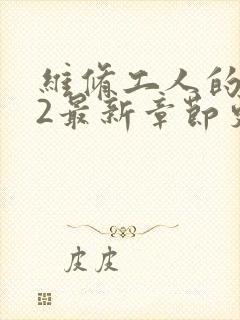 維脩工人的
2最新章節
皮皮